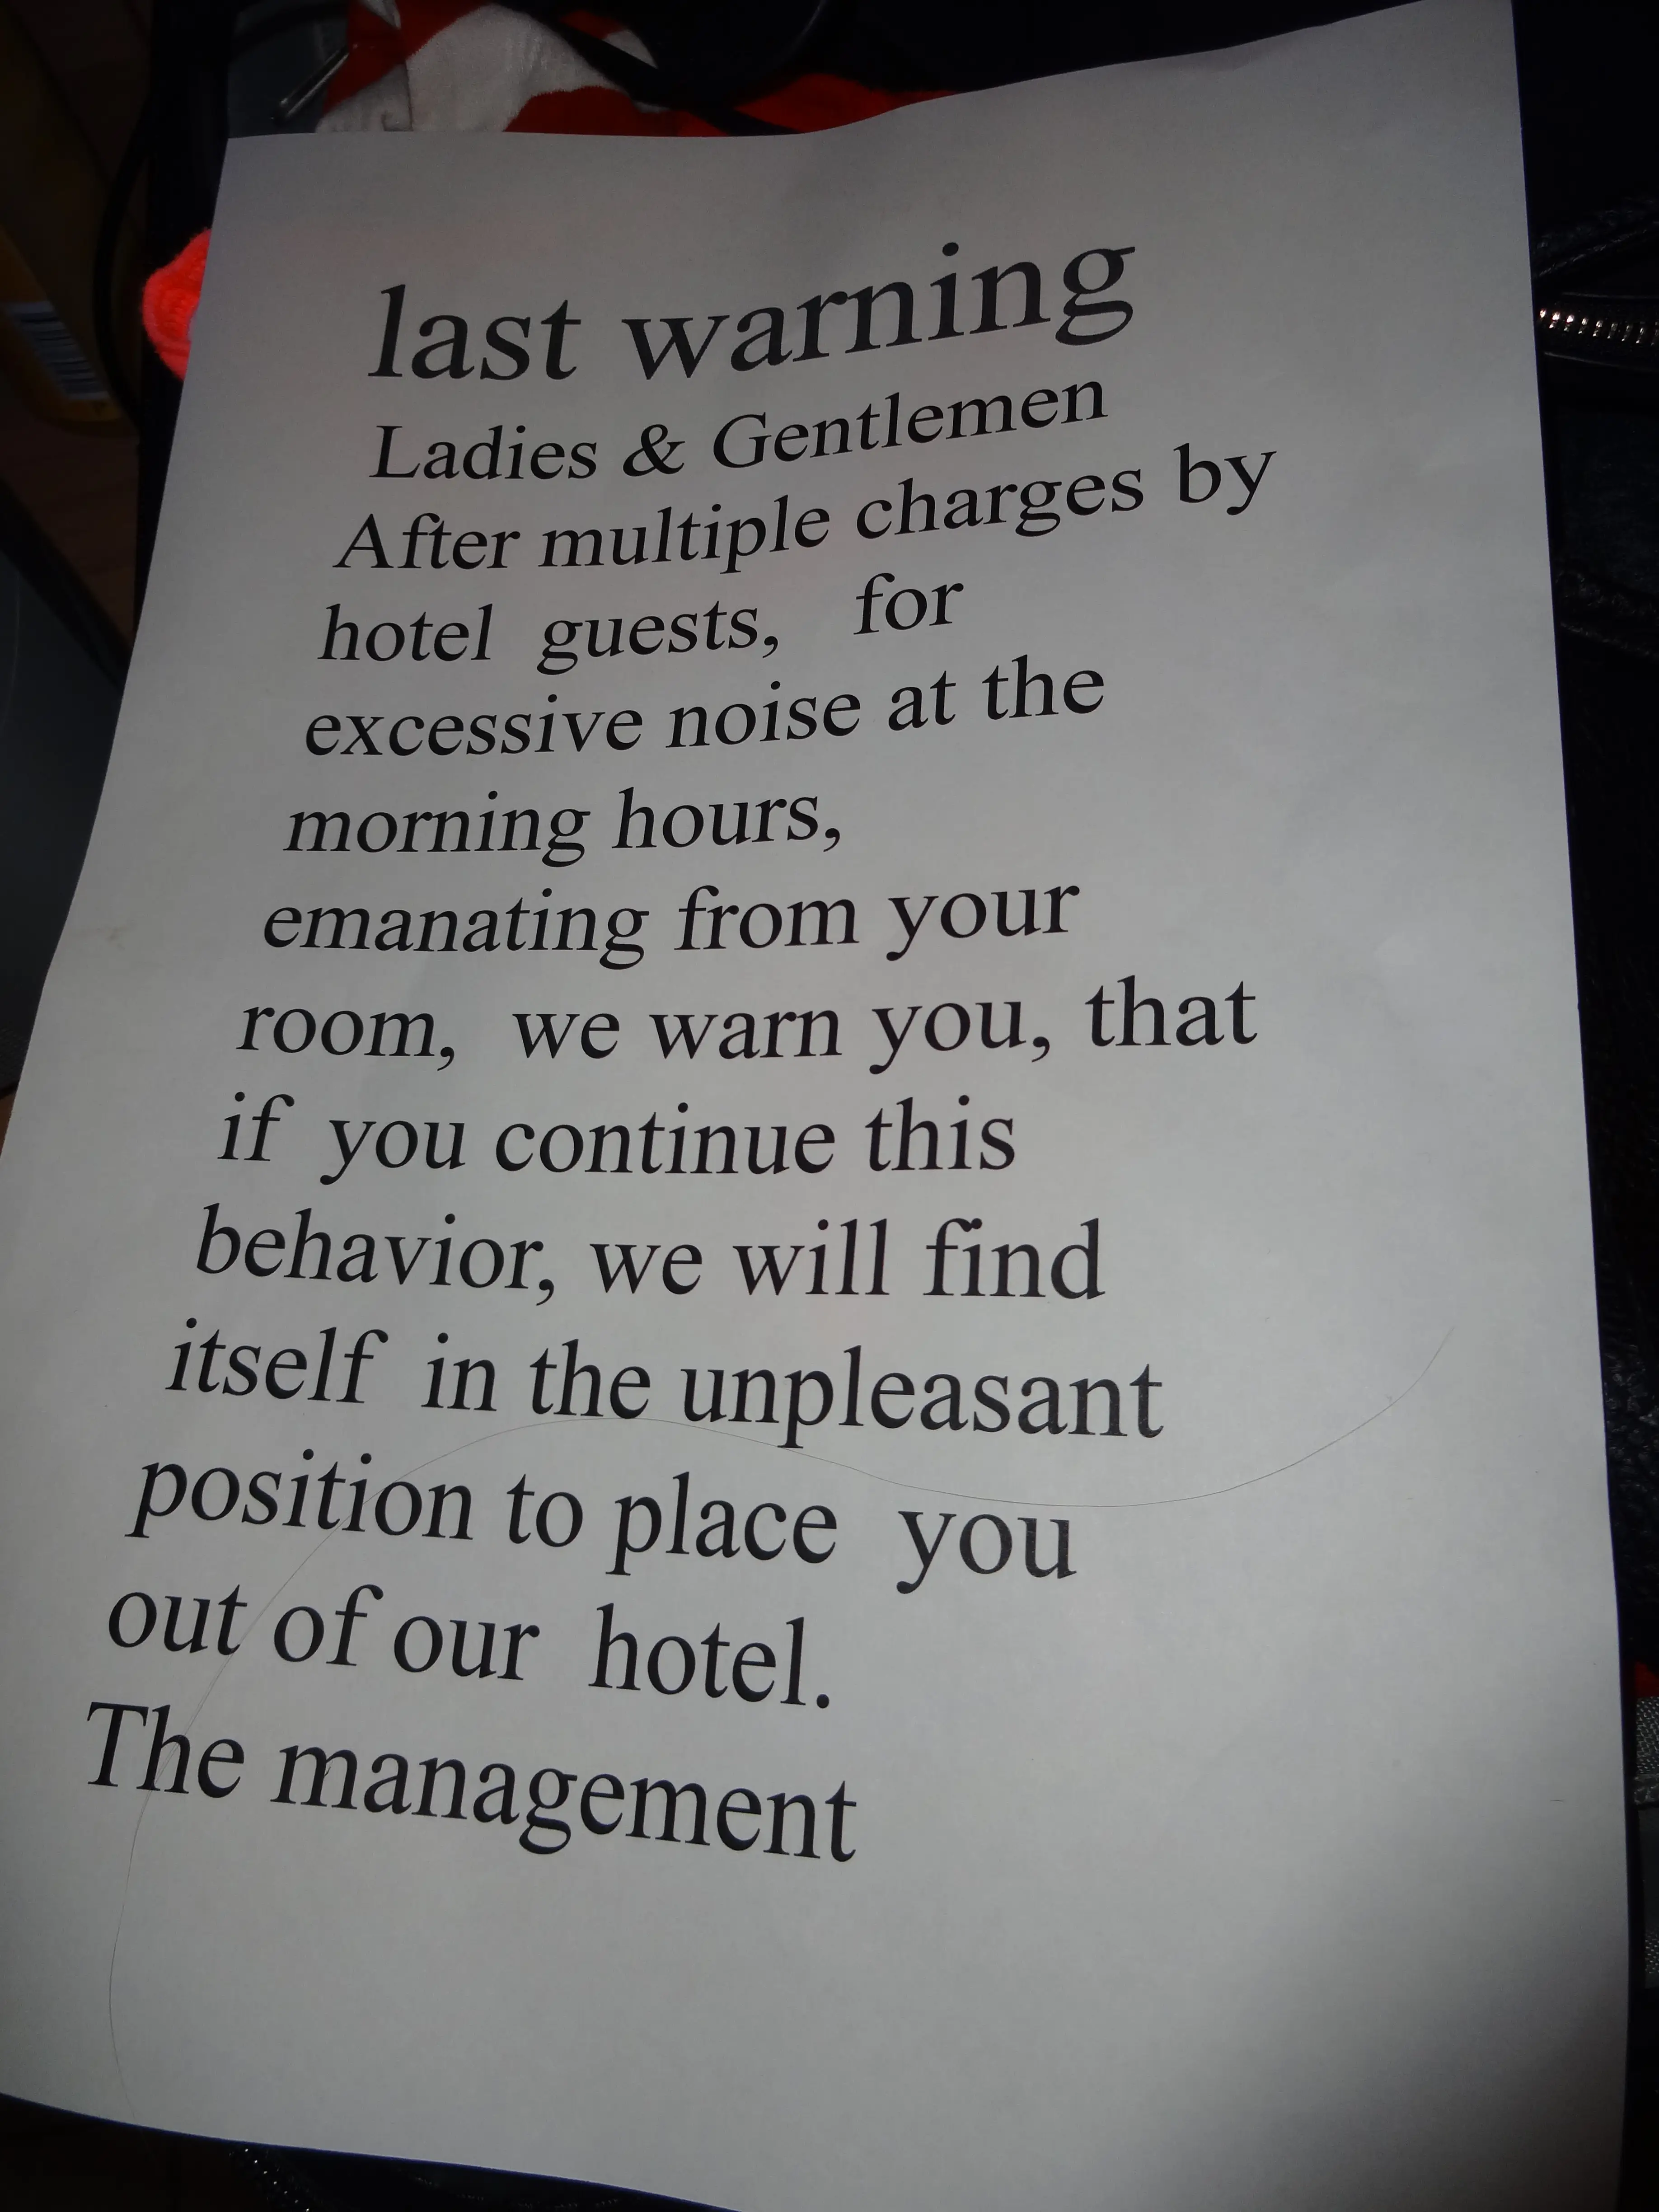 last warning
Ladies & Gentlemen
After multiple charges by
hotel guests, for
excessive noise at the
morning hours,
emanating from your
room, we warn you, that
if you continue this
behavior, we will find
itself in the unpleasant
position to place you
out of our hotel.
The management